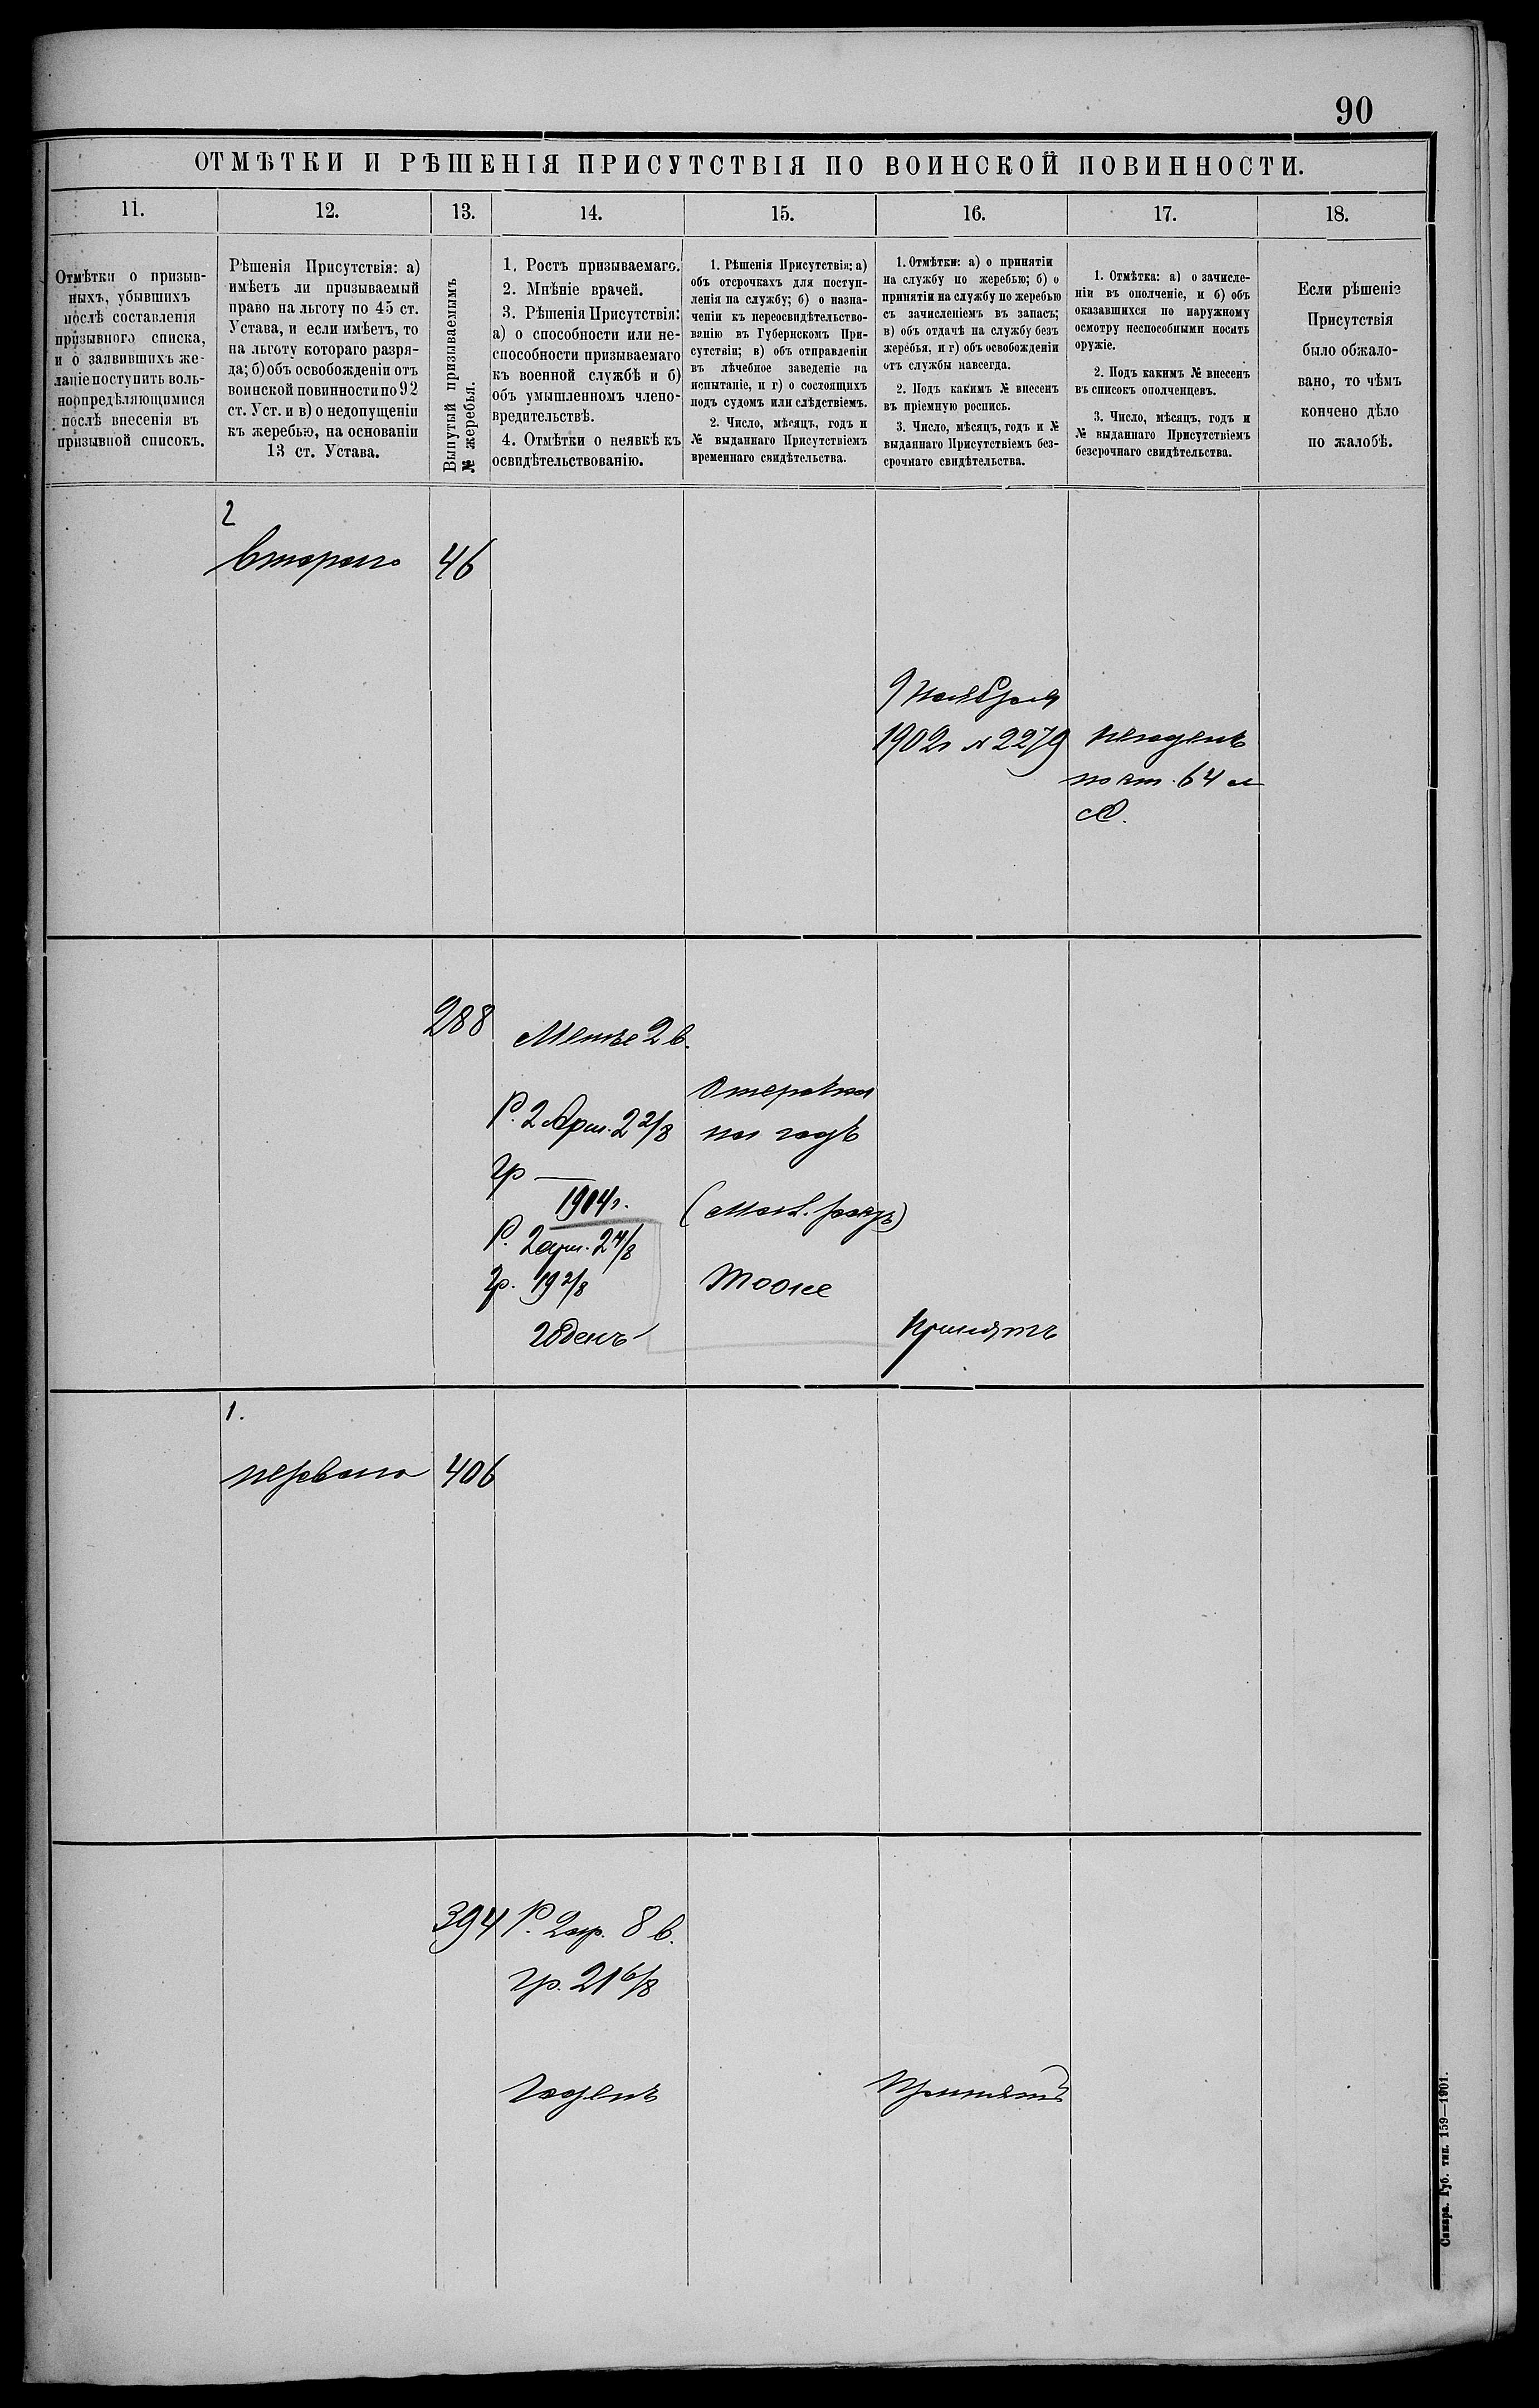 90
ОТМѢТКИ И РѢШЕНІЯ ПРИСУТСТВІЯ ПО ВОИНСКОЙ ПОВИННОСТИ.
11.
12.
13.
14.
15.
16.
17.
18.
Отмѣтки о призыв-
ныхъ, убывшихъ
послѣ составленія
призывного списка,
и о заявившихъ же-
ланіе поступить воль-
ноопредѣляющимися
послѣ внесенія въ
призывной списокъ.
Рѣшенія Присутствія: а)
имѣетъ ли призываемый
право на льготу по 45 ст.
Устава, и если имѣетъ, то
на льготу котораго разря-
да; б) объ освобожденіи отъ
воинской повинности по 92
ст. Уст. и в) о недопущеніи
къ жеребью, на основаніи
13 ст. Устава.
Вынутый призываемымъ
№ жеребья.
1. Ростъ призываемаго.
2. Мнѣніе врачей.
3. Рѣшенія Присутствія:
а) о способности или не-
способности призываемаго
къ военной службѣ и б)
объ умышленномъ члено-
вредительствѣ.
4. Отмѣтки о неявкѣ къ
освидѣтельствованію.
1. Рѣшенія Присутствія: а)
объ отсрочкахъ для поступ-
ленія на службу; б) о назна-
ченіи къ переосвидѣтельство-
ванію въ Губернскомъ При-
сутствіи; в) объ отправленіи
въ лѣчебное заведеніе на
испытаніе, и г) о состоящихъ
подъ судомъ или слѣдствіемъ.
2. Число, мѣсяцъ, годъ и
№ выданнаго Присутствіемъ
временнаго свидѣтельства.
1. Отмѣтки: а) о принятіи
на службу по жеребью; б) о
принятіи на службу по жеребью
съ зачисленіемъ въ запасъ;
в) объ отдачѣ на службу безъ
жеребья, и г) объ освобожденіи
отъ службы навсегда.
2. Подъ какимъ № внесенъ
въ пріемную роспись.
3. Число, мѣсяцъ, годъ и №
выданнаго Присутствіемъ без-
срочнаго свидѣтельства.
1. Отмѣтка: а) о зачисле-
ніи въ ополченіе, и б) объ
оказавшихся по наружному
осмотру неспособными носить
оружіе.
2. Подъ какимъ № внесенъ
въ списокъ ополченцевъ.
3. Число, мѣсяцъ, годъ и
№ выданнаго Присутствіемъ
безсрочнаго свидѣтельства.
Если рѣшеніе
Присутствія
было обжало-
вано, то чѣмъ
кончено дѣло
по жалобѣ.
2
втораго
46
9 Ноября
1902г № 2279
негоденъ
по ст. 64 л
А.
288
Менѣе 2 в.
Р. 2 Арш. 2 2/8
гр —
Отсрочка
на годъ
1904г.
Р. 2 арш. 2 4/8
гр. 19 2/8
Тоже
годенъ
Принятъ
1.
перваго
406
394
Р. 2 ар. 8 в.
гр. 21 6/8
Годенъ
Принятъ
Самара. Губ. тип. 159—1901.